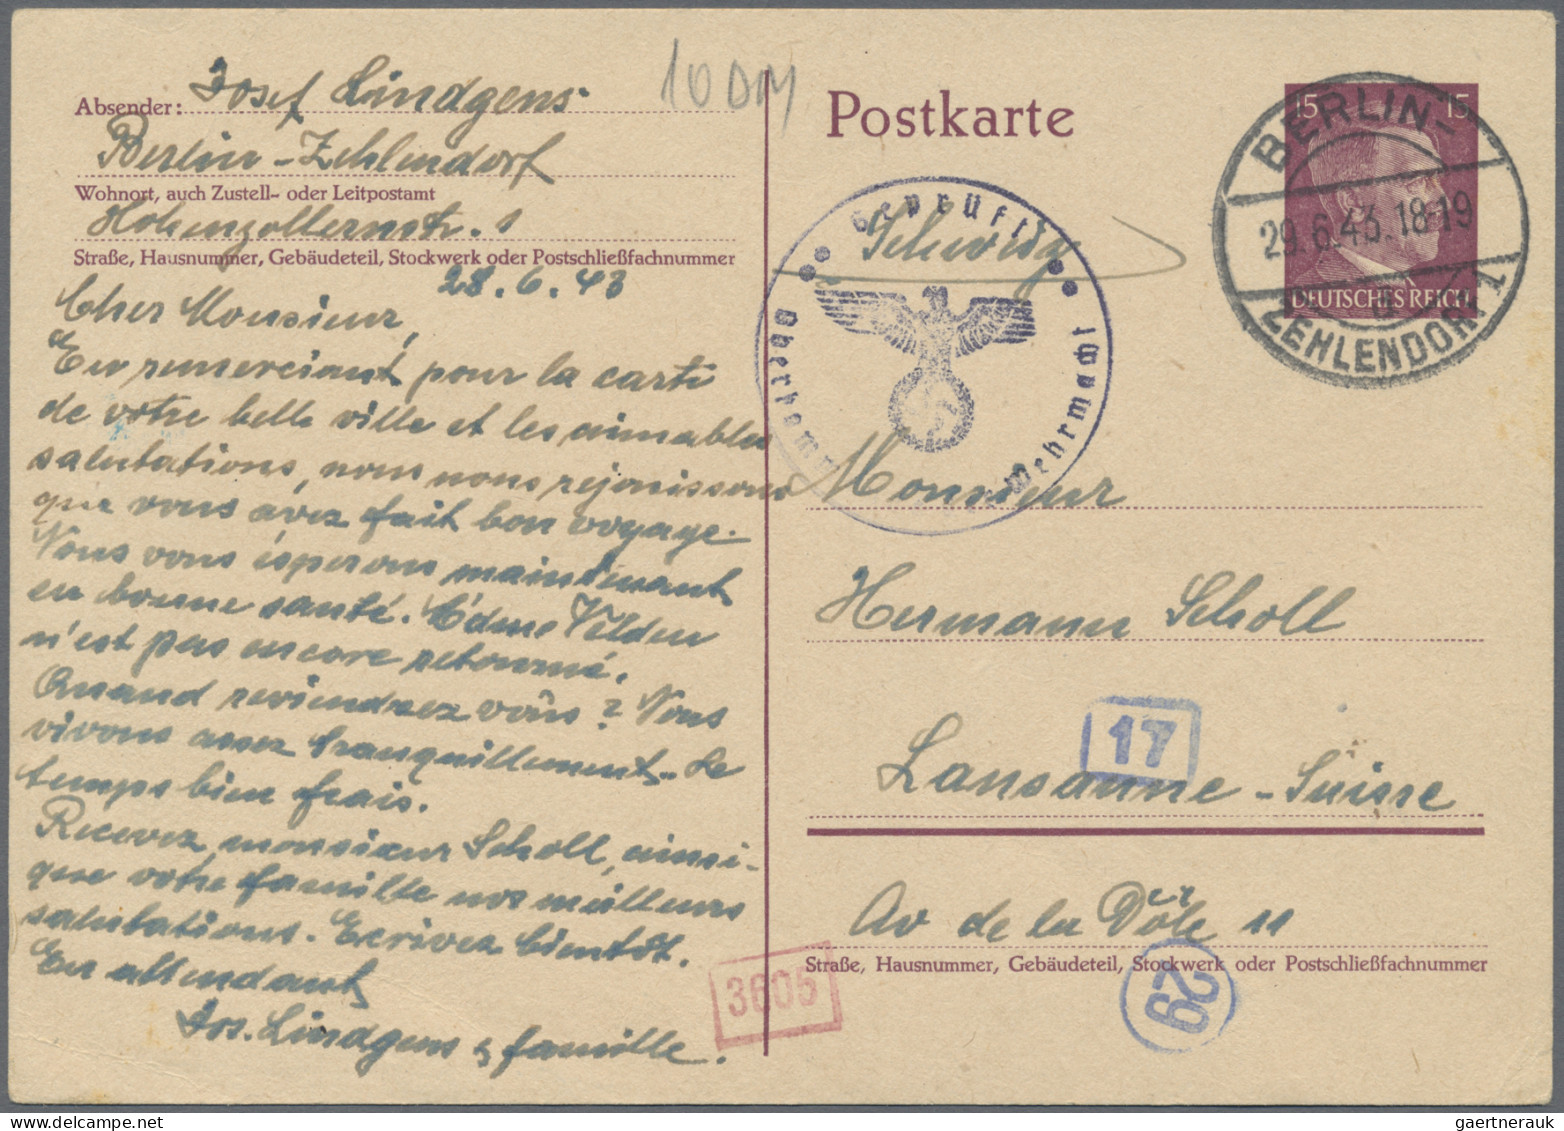 Absender: Josef Lindgens
Berlin-Zehlendorf
Wohnort, auch Zustell- oder Leitpostamt
Hohenzollernstr. 1
Straße, Hausnummer, Gebäudeteil, Stockwerk oder Postschließfachnummer
28.6.43
Cher Monsieur,
En remerciant pour la carte
de votre belle ville et les aimables
salutations, nous nous rejouissons
que vous avez fait bon voyage.
Nous vous ésperons maintenant
en bonne santé. Edme Velden
n'est pas encore retourné.
Quand reviendrez vous? Nous
vivons assez tranquillement. Le
temps bien frais.
Recevez, monsieur Scholl, ainsi-
que votre famille nos meilleurs
salutations. Ecrivez bientôt.
En attendant
Jos. Lindgens & famille.
10 DM
Postkarte
15 15
DEUTSCHES REICH
BERLIN-
29.6.43.18-19
ZEHLENDORF 1
Geprüft
Oberkomm Wehrmacht
Schweiz
Monsieur
Hermann Scholl
17
Lausanne - Suisse
Av de la Dôle 11
Straße, Hausnummer, Gebäudeteil, Stockwerk oder Postschließfachnummer
3605
29
gaertnerauk